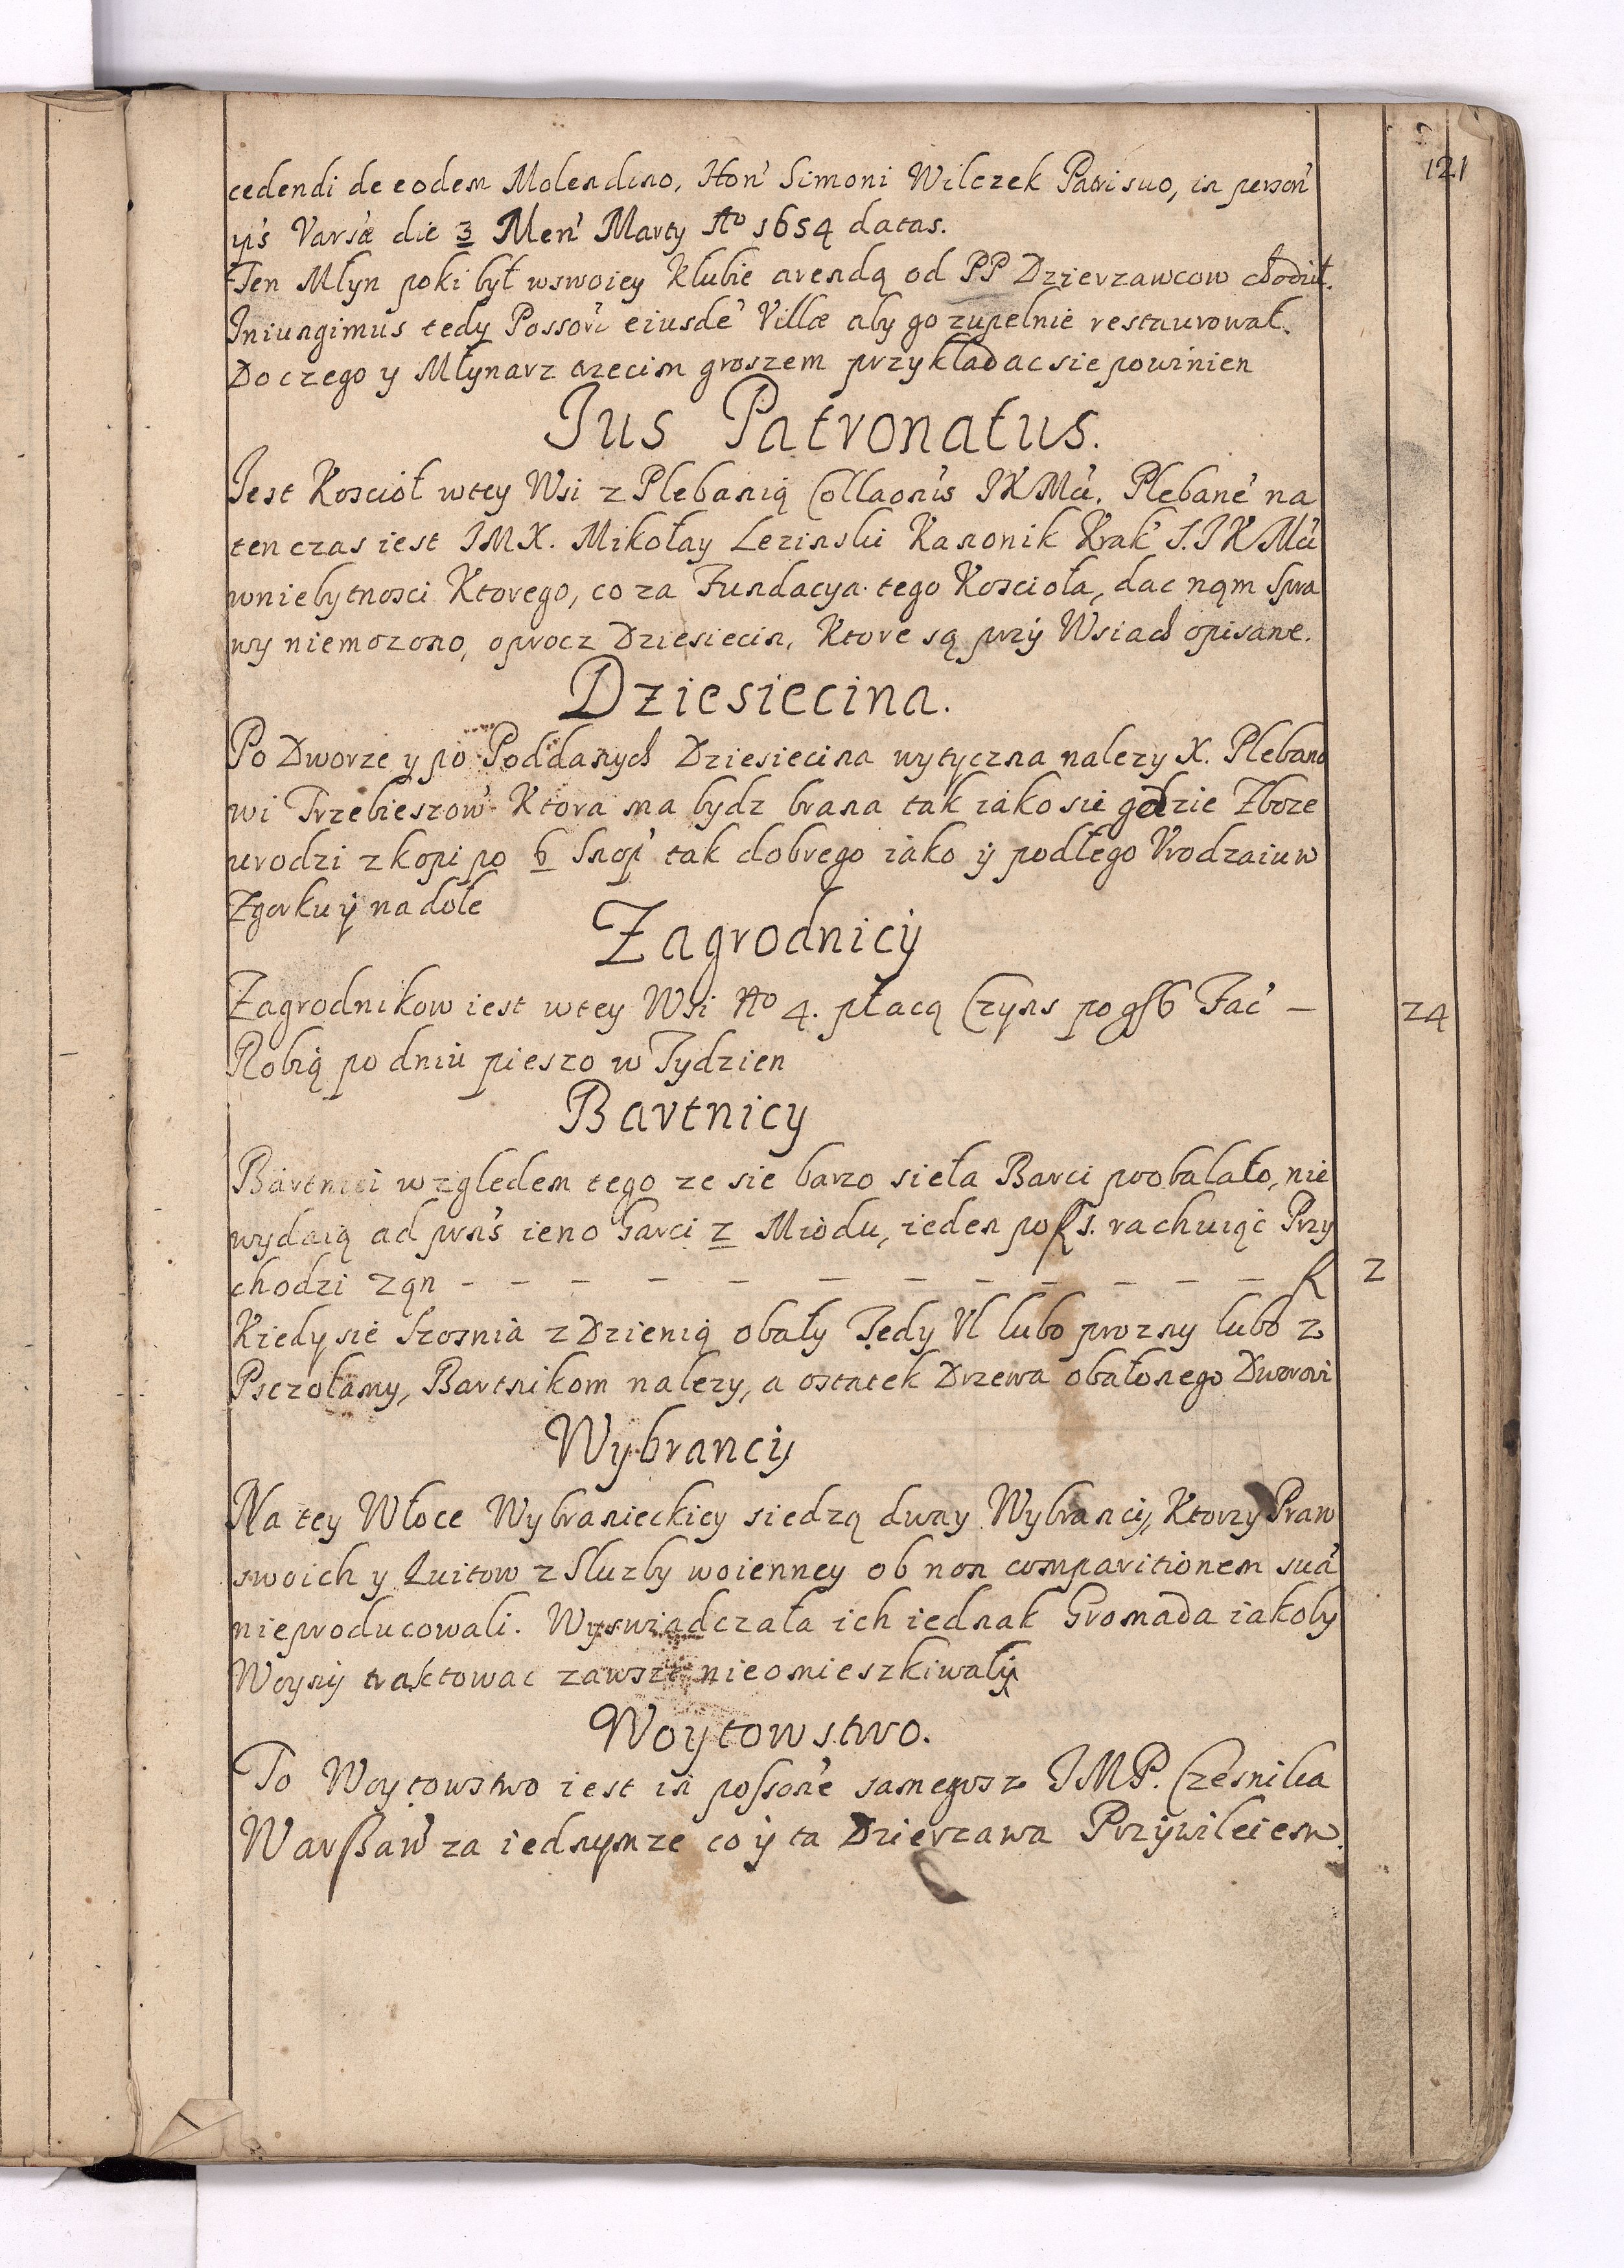 121
cedendi de eodem Molendino, Hon' Simoni Wilczek Patri suo, in person'
ijs Varsæ die 3 Men' Marty Ao 1654 datas.
Ten Młyn poki był wswoiey klubie arendą od PP Dzierzawcow chodził.
Iniungimus tedy Possori eiusde' Villæ aby go zupelnie restaurował.
Do czego y Młynarz trzecim groszem przykładac sie powinien
Ius Patronatus.
Iest Kosciół wtey Wsi z Plebanią Collaonis IKMci. Plebane' na
ten czas iest IMX. Mikołay Lezinski Kanonik Krak' S. IKMci
wniebytnosci Ktorego, co za Fundacya tego Koscioła, dac nąm Spra
wy niemozono, oprocz Dziesiecin, Ktore są przy Wsiach opisane.
Dziesiecina.
Po Dworze y po Poddanych Dziesiecina wytyczna nalezy X. Plebano
wi Trzebieszow' Ktora ma bydz brana tak iako sie gdzie Zboze
urodzi z kopi po 6 Snop' tak dobrego iako ij podłego Vrodzaiu w
Zgorku ij na dole
Zagrodnicy
Zagrodnikow iest wtey Wsi No 4. płacą Czyns po gr 6 Fac' — 24
Robią po dniu pieszo w Tydzien
Bartnicy
Bartnici względem tego ze sie barzo sieła Barci poobalało, nie
wydaią ad prns ieno Garci 2 Miodu, ieden po fl 5. rachuiąc Przy
chodzi zqn - - - - - - - - - - - - fl 2
Kiedy sie Szosnia z Dzienią obały Tedy Vl lubo prozny lubo z
Psczołamy, Bartnikom nalezy, a ostatek Drzewa obałonego Dworowi
Wybrancij
Na tey Włoce Wybranieckiey siedzą dway Wybrancij, Ktorzy Praw
swoich y Quitow z Sluzby woienney ob non comparitionem sua'
nieproducowali. Wyswiadczała ich iednak Gromada iakoby
Woyny traktowac zawsze nieomieszkiwały
Woytowstwo.
To Woytowstwo iest in possone' samegosz IMP. Czesnika
Warszaw' za iednymze co ij ta Dzierzawa Przywileiem.